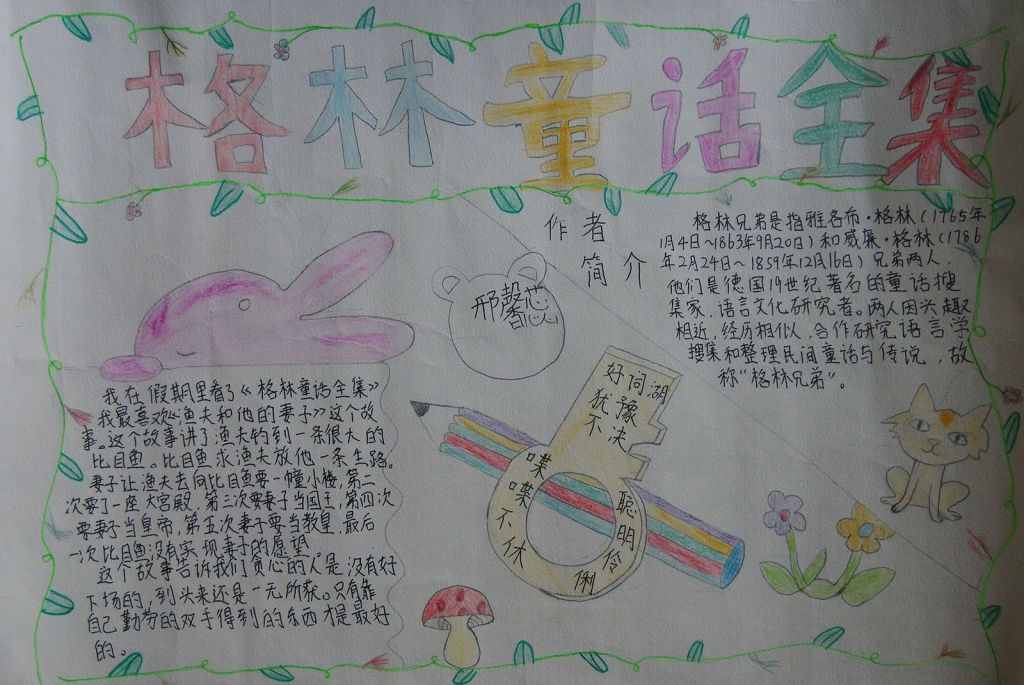 格林童话全集
作者
简介
邢馨芯
格林兄弟是指雅各布·格林(1765年
1月4日~1863年9月20日)和威廉·格林(1786
年2月24日~1859年12月16日)兄弟两人.
他们是德国19世纪著名的童话搜
集家,语言文化研究者。两人因兴趣
相近,经历相似,合作研究语言学
搜集和整理民间童话与传说,故
称“格林兄弟”。
我在假期里看了《格林童话全集》
我最喜欢《渔夫和他的妻子》这个故
事。这个故事讲了渔夫钓到一条很大的
比目鱼。比目鱼求渔夫放他一条生路。
妻子让渔夫去向比目鱼要一幢小楼,第二
次要了一座大宫殿,第三次要妻子当国王,第四次
要妻子当皇帝,第五次妻子要当教皇,最后
一次比目鱼没有实现妻子的愿望
这个故事告诉我们贪心的人是没有好
下场的,到头来还是一无所获。只有靠
自己勤劳的双手得到的东西才是最好
的。
好词湖
犹豫不决
喋喋不休
聪明伶俐